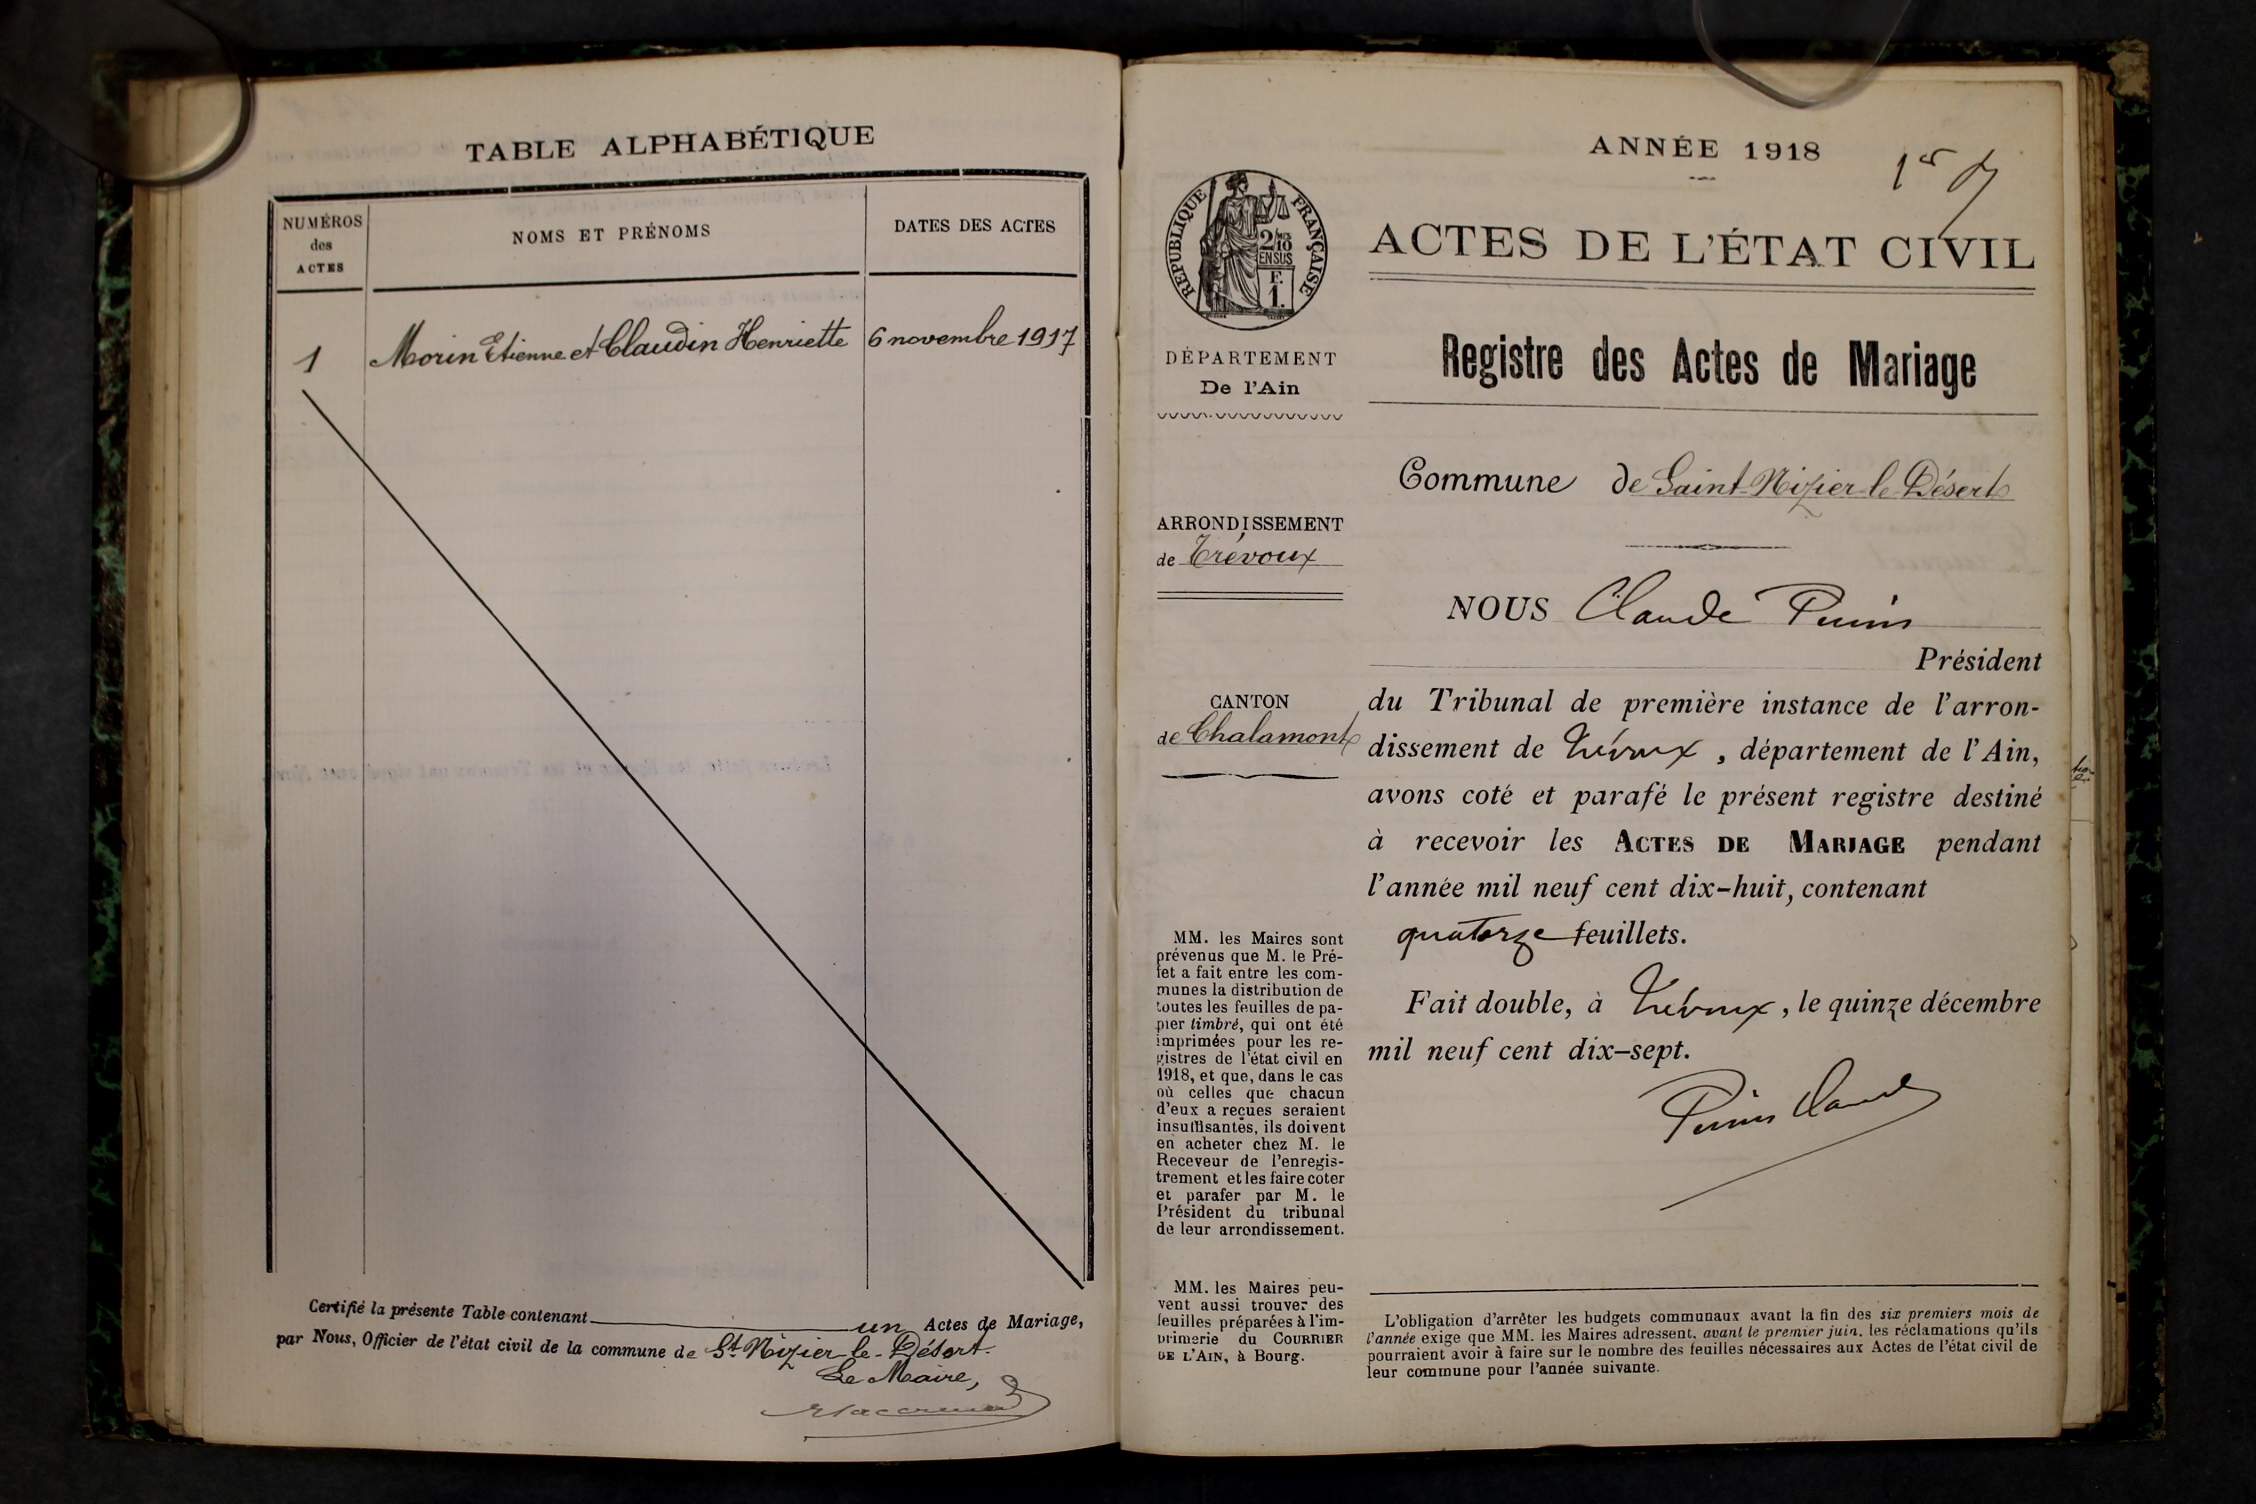 TABLE ALPHABÉTIQUE
NUMÉROS
des
ACTES
NOMS ET PRÉNOMS
DATES DES ACTES
1 Morin Etienne et Claudin Henriette 6 novembre 1917
Certifié la présente Table contenant un Actes de Mariage,
par Nous, Officier de l'état civil de la commune de St Nizier-le-Désert.
Le Maire,
ANNÉE 1918
1er
RÉPUBLIQUE FRANÇAISE
2/10
EN SUS
F.
1.
DÉPARTEMENT
De l'Ain
ARRONDISSEMENT
de Trévoux
CANTON
de Chalamont
MM. les Maires sont
prévenus que M. le Pré-
fet a fait entre les com-
munes la distribution de
toutes les feuilles de pa-
pier timbré, qui ont été
imprimées pour les re-
gistres de l'état civil en
1918, et que, dans le cas
où celles que chacun
d'eux a reçues seraient
insuffisantes, ils doivent
en acheter chez M. le
Receveur de l'enregis-
trement et les faire coter
et parafer par M. le
Président du tribunal
de leur arrondissement.
MM. les Maires peu-
vent aussi trouver des
feuilles préparées à l'im-
primerie du COURRIER
DE L'AIN, à Bourg.
ACTES DE L'ÉTAT CIVIL
Registre des Actes de Mariage
Commune de Saint-Nizier-le-Désert
NOUS Claude
Président
du Tribunal de première instance de l'arron-
dissement de Trévoux, département de l'Ain,
avons coté et parafé le présent registre destiné
à recevoir les ACTES DE MARIAGE pendant
l'année mil neuf cent dix-huit, contenant
quatorze feuillets.
Fait double, à Trévoux, le quinze décembre
mil neuf cent dix-sept.
L'obligation d'arrêter les budgets communaux avant la fin des six premiers mois de
l'année exige que MM. les Maires adressent, avant le premier juin, les réclamations qu'ils
pourraient avoir à faire sur le nombre des feuilles nécessaires aux Actes de l'état civil de
leur commune pour l'année suivante.